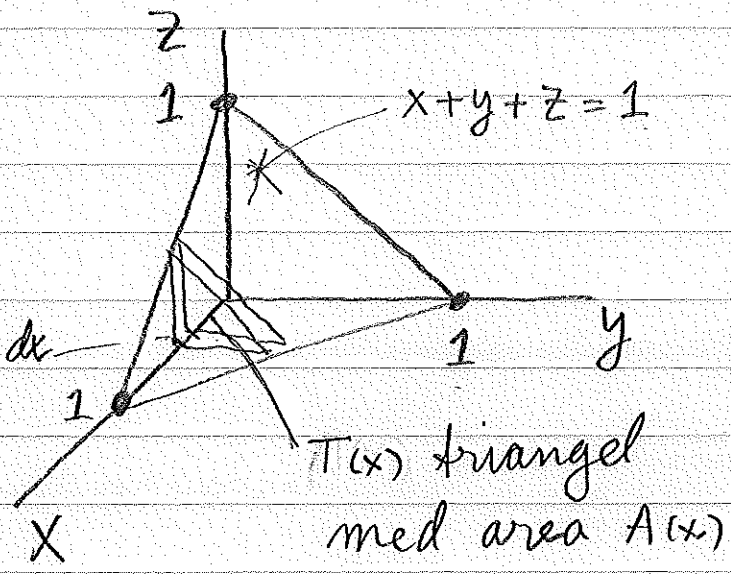 Z
1
x+y+z=1
dx
1
1
y
T(x) triangel
X
med area A(x)